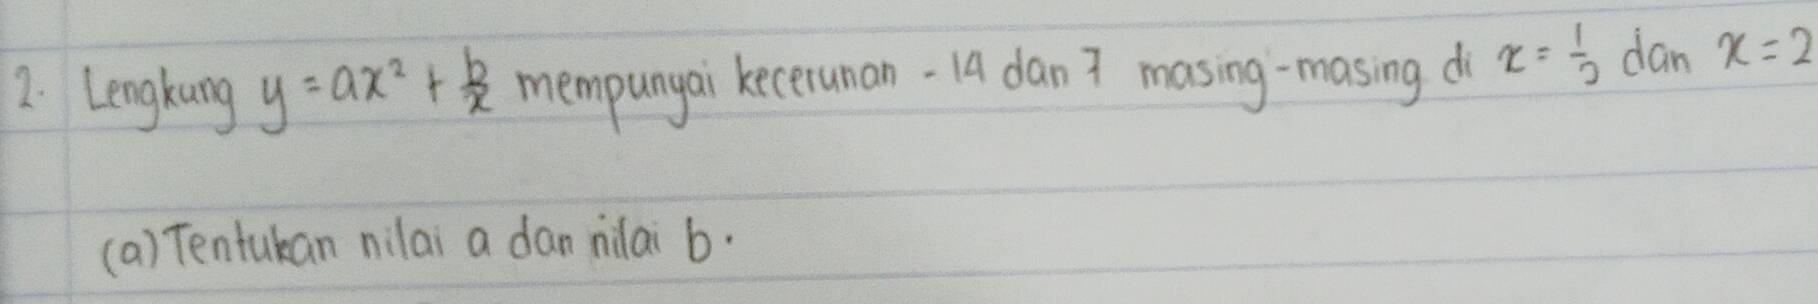 2. Lengkung y = ax² + b/x mempunyai kecerunan -14 dan 7 masing-masing di x = 1/2 dan x = 2
(a) Tentukan nilai a dan nilai b.